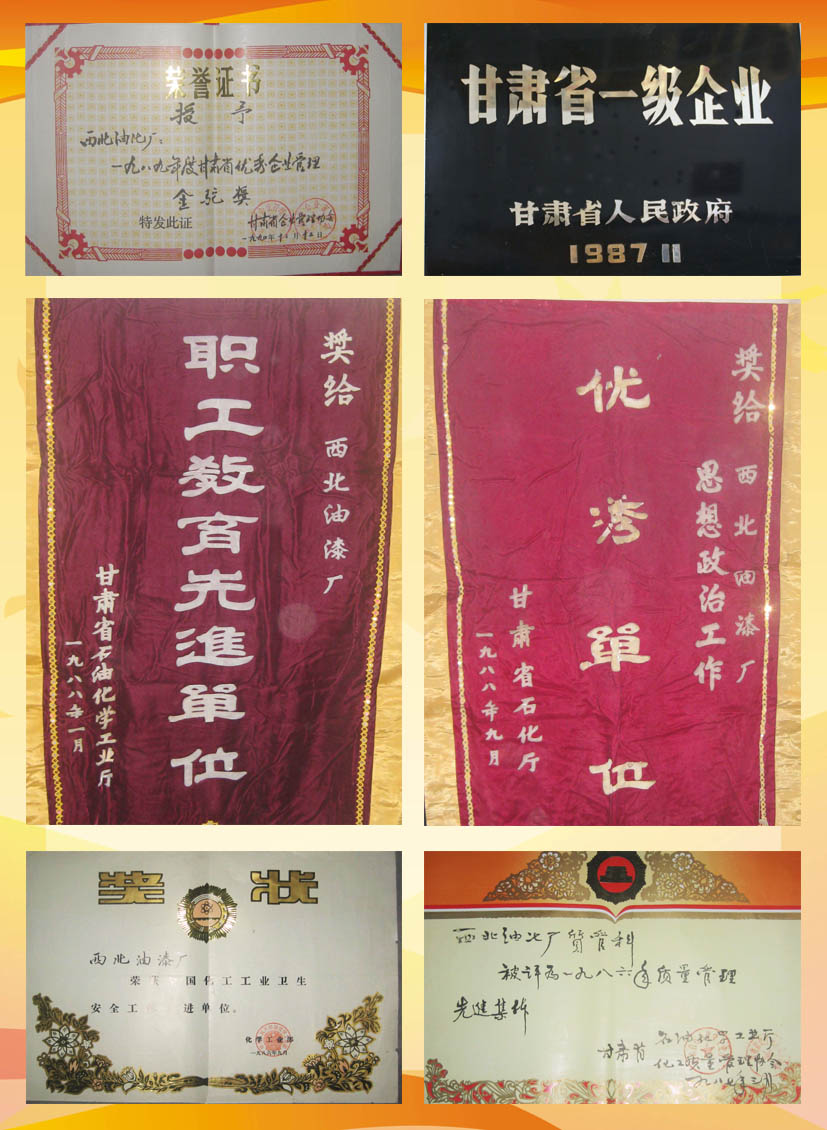 荣誉证书
授予
西北油漆厂:
一九八九年度甘肃省优秀企业管理
金驼奖
特发此证
甘肃省企业管理协会
甘肃省一级企业
甘肃省人民政府
1987 11
奖给 西北油漆厂
职工教育先進單位
甘肃省石油化学工业厅
一九八八年一月
奖给 西北油漆厂
思想政治工作
优秀單位
甘肃省石化厅
一九八八年九月
奖状
西北油漆厂
荣获 国化工工业卫生
安全工作 进单位。
化学工业部
西北油漆厂質管科
被评为一九八六年质量管理
先進集体
甘肃省 石油化学工业厅
化工质量管理协会
一九八七年三月